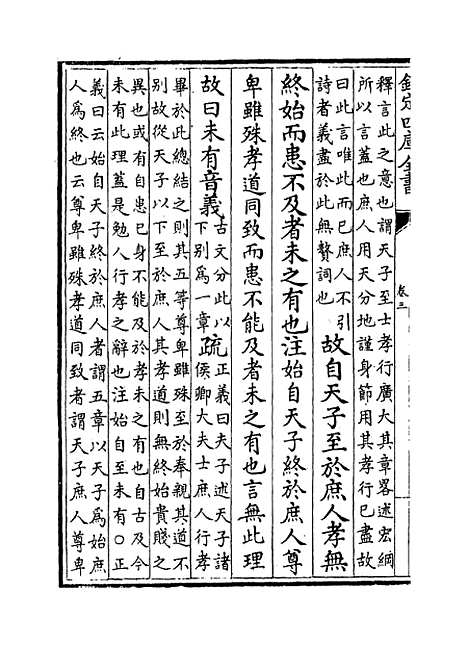 欽定四庫全書
卷三
釋言此之意也謂天子至士孝行廣大其章畧述宏綱
所以言蓋也庶人用天分地謹身節用其孝行已盡故
曰此言唯此而已庶人不引
詩者義盡於此無贅詞也
故自天子至於庶人孝無
終始而患不及者未之有也注始自天子終於庶人尊
卑雖殊孝道同致而患不能及者未之有也言無此理
故曰未有音義
古文分此以
下别為一章
疏
正義曰夫子述天子諸
侯卿大夫士庶人行孝
畢於此總結之則其五等尊卑雖殊至於奉親其道不
别故從天子以下至於庶人其孝道則無終始貴賤之
異也或有自患已身不能及於孝未之有也自古及今
未有此理蓋是勉人行孝之辭也注始自至未有○正
義曰云始自天子終於庶人者謂五章以天子為始庶
人為終也云尊卑雖殊孝道同致者謂天子庶人尊卑